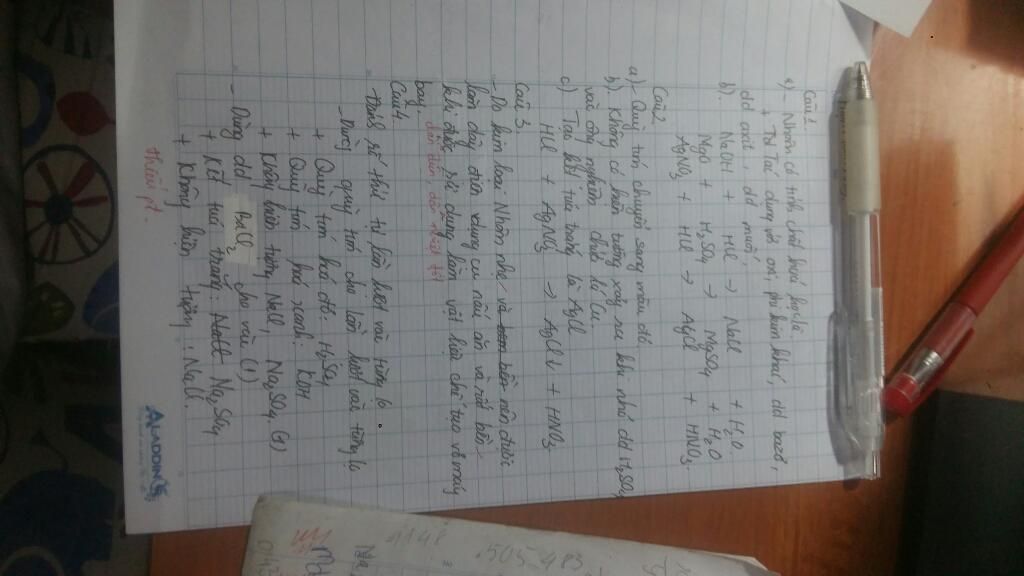 Câu 1.
a) - Nhôm có tính chất hoá học là
+ Tối Tác dụng với oxi, phi kim khác, dd bazơ,
dd axit, dd muối,
b). NaOH + HCl → NaCl + H₂O.
MgO + H₂SO₄ → MgSO₄ + H₂O
AgNO₃ + HCl → AgCl + HNO₃.
Câu 2
a) - Quỳ tím chuyển sang màu đỏ.
b) Không có hiện tượng xảy ra khi nhỏ dd H₂SO₄
vào ống nghiệm chứa lá Cu.
c) Tạo kết tủa trắng là AgCl
HCl + AgNO₃ → AgCl↓ + HNO₃
Câu 3.
- Do kim loại Nhôm nhẹ và bền nên được
làm dây điện dụng cụ nấu ăn và rất bền,
khi được sử dụng làm vật liệu chế tạo vỏ máy
bay. dẫn điện, dẫn nhiệt tốt
Câu 4.
- Đánh số thứ tự lần lượt vào từng lọ.
- Dùng quỳ tím cho lần lượt vào từng lọ
+ Quỳ tím hoá đỏ: H₂SO₄
+ Quỳ tím hoá xanh: KOH
+ Không hiện tượng NaCl, Na₂SO₄. (1)
- Dùng dd BaCl₂ cho vào (1)
+ Kết tủa trắng: Na₂SO₄
+ Không hiện tượng: NaCl.
thiếu pt.
ALADDIN
4148
505-483